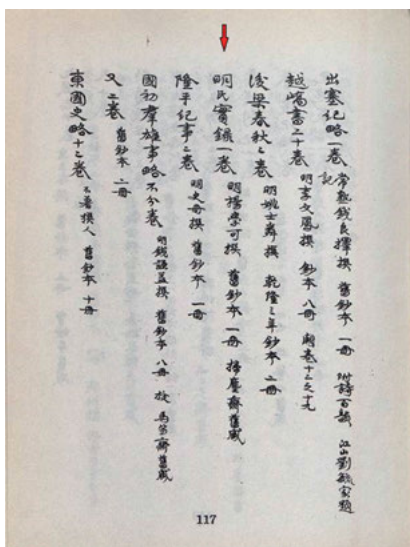 出塞紀略一卷 常熟錢良擇撰 舊鈔本 一冊 附詩百韻 江山劉毓家題
記
越嶠書二十卷 明李文鳳撰 鈔本 八冊 闕卷十二之十九
後梁春秋二卷 明姚士粦撰 乾隆三年鈔本 二冊
明氏實錄一卷 明楊學可撰 舊鈔本 一冊 掃塵齋舊藏
隆平紀事二卷 明史冊撰 舊鈔本 一冊
國初羣雄事略不分卷 明錢謙益撰 舊鈔本 八冊 馬笏齋舊藏
又二卷 舊鈔本 二冊
東國史略十二卷 不著撰人 舊鈔本 十冊
117